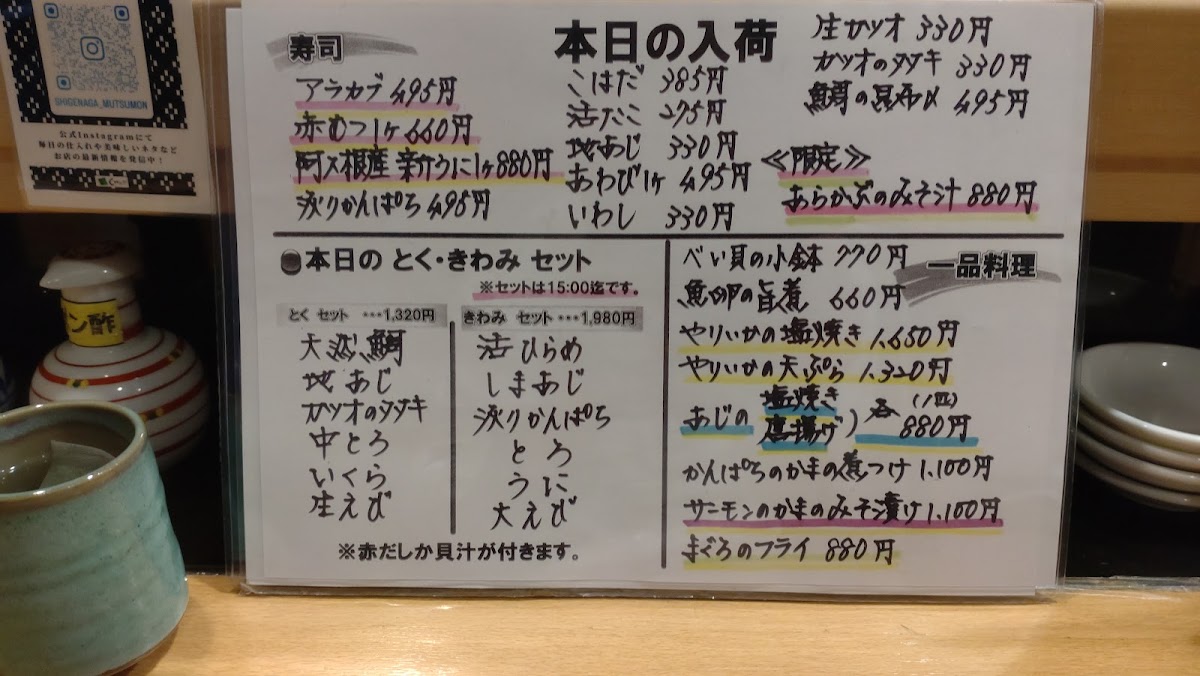 SHIGENAGA_MUTSUMON
公式Instagramにて
毎日の仕入れや美味しいネタなど
お店の最新情報を発信中!
ン酢
本日の入荷
寿司
アラカブ 495円
赤むつ1ヶ 660円
阿久根産 辛サウに1ヶ880円
活〆りかんぱち 495円
こはだ 385円
活たこ 275円
地あじ 330円
あわび1ヶ 495円
いわし 330円
生カツオ 330円
カツオのタタキ 330円
鯛の昆布〆 495円
≪限定≫
あらかぶのみそ汁 880円
本日の とく・きわみ セット
※セットは15:00迄です。
とく セット ･･･1,320円
天然鯛
地あじ
カツオのタタキ
中とろ
いくら
生えび
きわみ セット･･･1,980円
活ひらめ
しまあじ
活〆りかんぱち
とろ
うに
大えび
※赤だしか貝汁が付きます。
一品料理
べい貝の小鉢 770円
魚卵の旨煮 660円
やりいかの塩焼き 1,650円
やりいかの天ぷら 1,320円
あじの 塩焼き 唐揚げ ) 各(1匹) 880円
かんぱちのかまの煮つけ 1,100円
サーモンのかまのみそ漬け 1,100円
まぐろのフライ 880円